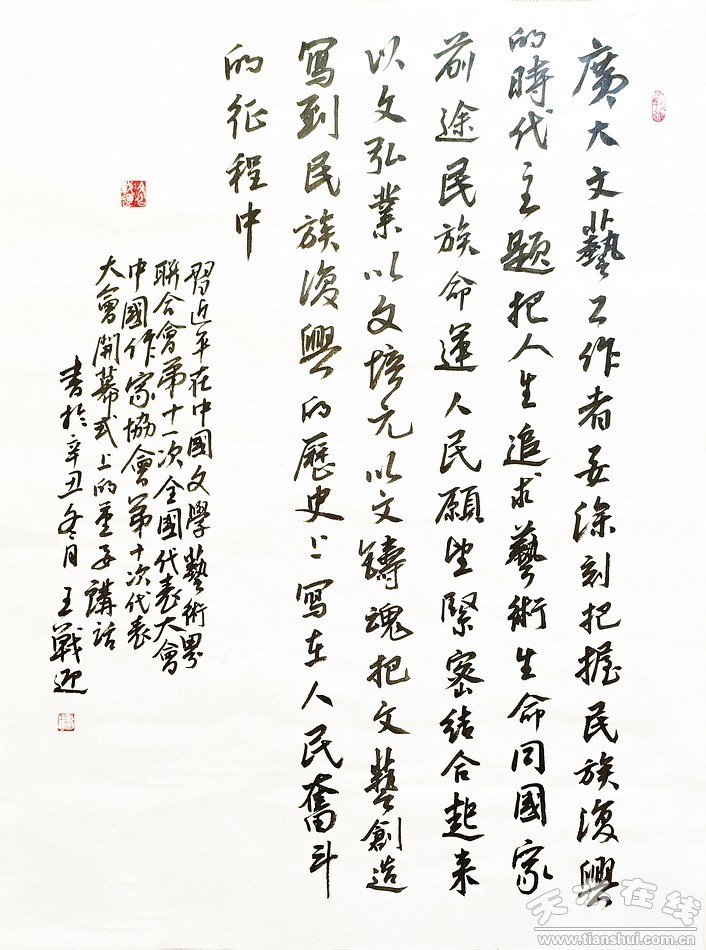 廣大文藝工作者要深刻把握民族復興
的時代主題把人生追求藝術生命同國家
前途民族命運人民願望緊密結合起来
以文弘業以文培元以文鑄魂把文藝創造
寫到民族復興的歷史上寫在人民奮斗
的征程中
習近平在中國文學藝術界
聯合會第十一次全國代表大會
中國作家協會第十次代表
大會開幕式上的重要講話
書於辛丑冬月王戰迎
天水在线
www.tianshui.com.cn